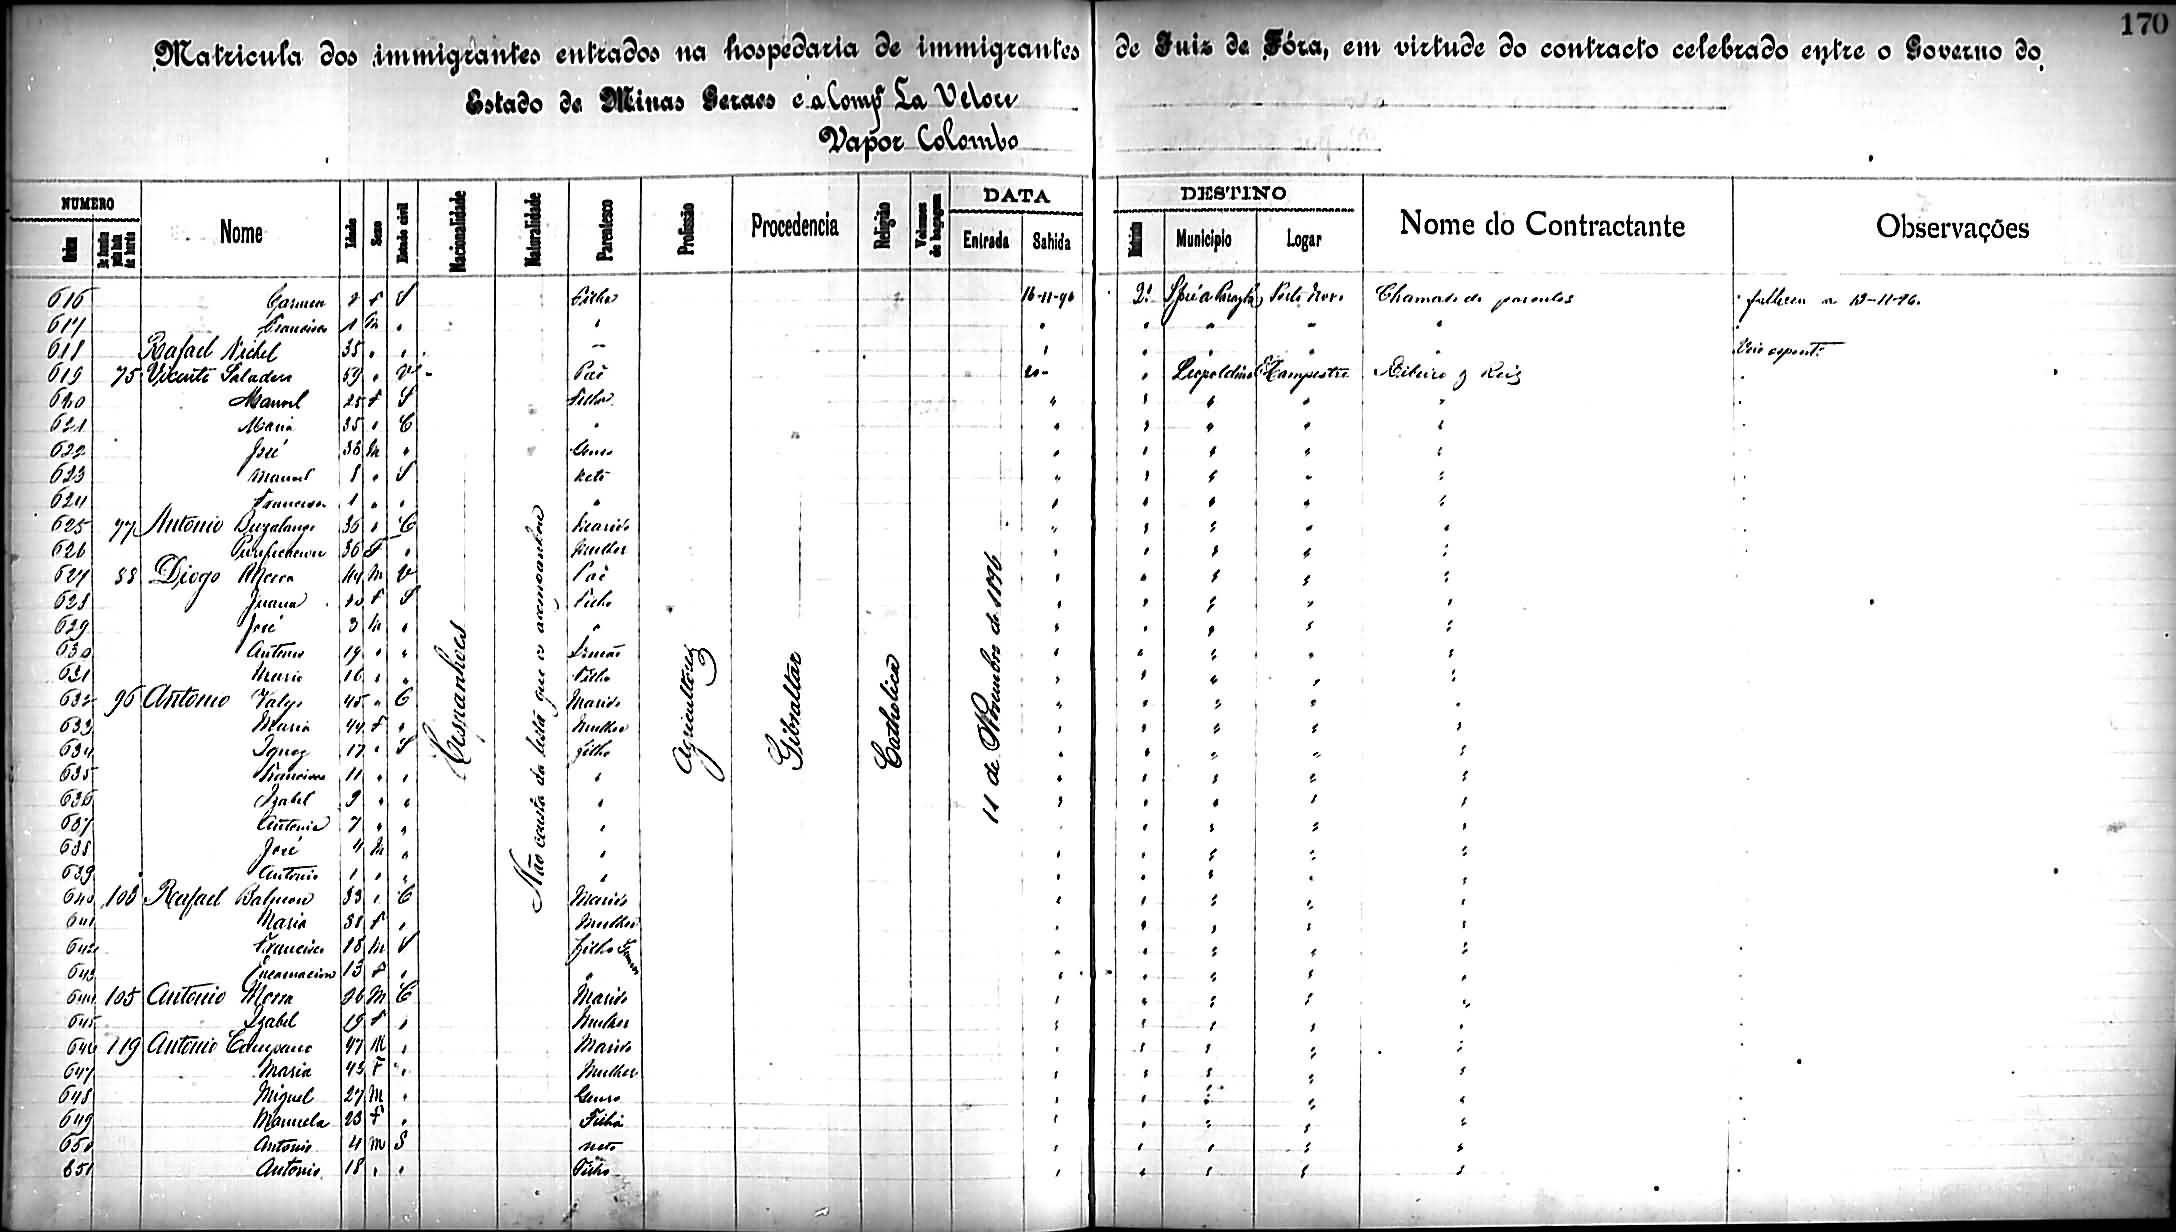 170
Matricula dos immigrantes entrados na hospedaria de immigrantes de Juiz de Fóra, em virtude do contracto celebrado entre o Governo do
Estado de Minas Geraes e a Comp La Veloce
Vapor Colombo
NUMERO Nome Idade Sexo Estado civil Nacionalidade Naturalidade Parentesco Profissão Procedencia Religião Volumes de bagagem DATA DESTINO Nome do Contractante Observações
Ordem Entrada Sahida Districto Municipio Logar
616 Carmen 2 f S Filha 16-11-96 2º Porto Novo Chamado de parentes falleceu a 13-11-96.
617 Francisco 1 M " " " " " " "
618 Rafael Nichel 35 " " — " " " " " Veio espont.
619 75 Vicente Saladera 59 " V Pae 20- " Leopoldina Campestre Ribeiro & Reis
620 Manoel 25 f S Filha " " " " "
621 Maria 35 " C " " " " " "
622 José 36 M " Genro " " " " "
623 Manoel 8 " S Neto " " " " "
624 Francisco 1 " " " " " " " "
625 77 Antonio 36 " C Marido " " " " "
626 Purificacion 36 F " Mulher " " " " "
627 88 Diogo Merra 44 M V Pae " " " " "
628 Juana 20 F S Filha " " " " "
629 José 3 M " " " " " " "
630 Antonio 19 " " Irmão " " " " "
631 Mario 16 " " Filho " " " " "
632 96 Antonio 45 " C Marido " " " " "
633 Maria 44 f " Mulher " " " " "
634 Ignez 17 " S filha " " " " "
635 Francisca 11 " " " " " " " "
636 Izabel 9 " " " " " " " "
637 Antonia 7 " " " " " " " "
638 José 4 M " " " " " " "
639 Antonio 1 " " " " " " " "
640 103 Rafael 33 " C Marido " " " " "
641 Maria 31 f " Mulher " " " " "
642 Francisco 18 M S filho " " " " "
643 Encarnacion 13 f " " " " " " "
644 105 Antonio Merra 26 M C Marido " " " " "
645 Izabel 19 f " Mulher " " " " "
646 119 Antonio Campano 47 M " Marido " " " " "
647 Maria 43 F " Mulher " " " " "
648 Miguel 27 M " Genro " " " " "
649 Manuela 23 f " Filha " " " " "
650 Antonio 4 M S neto " " " " "
651 Antonio 18 " " Filho " " " " "
Hespanhoes
Não consta da lista que os acompanhou
Agricultores
Gibraltar
Catholica
11 de Novembro de 1896